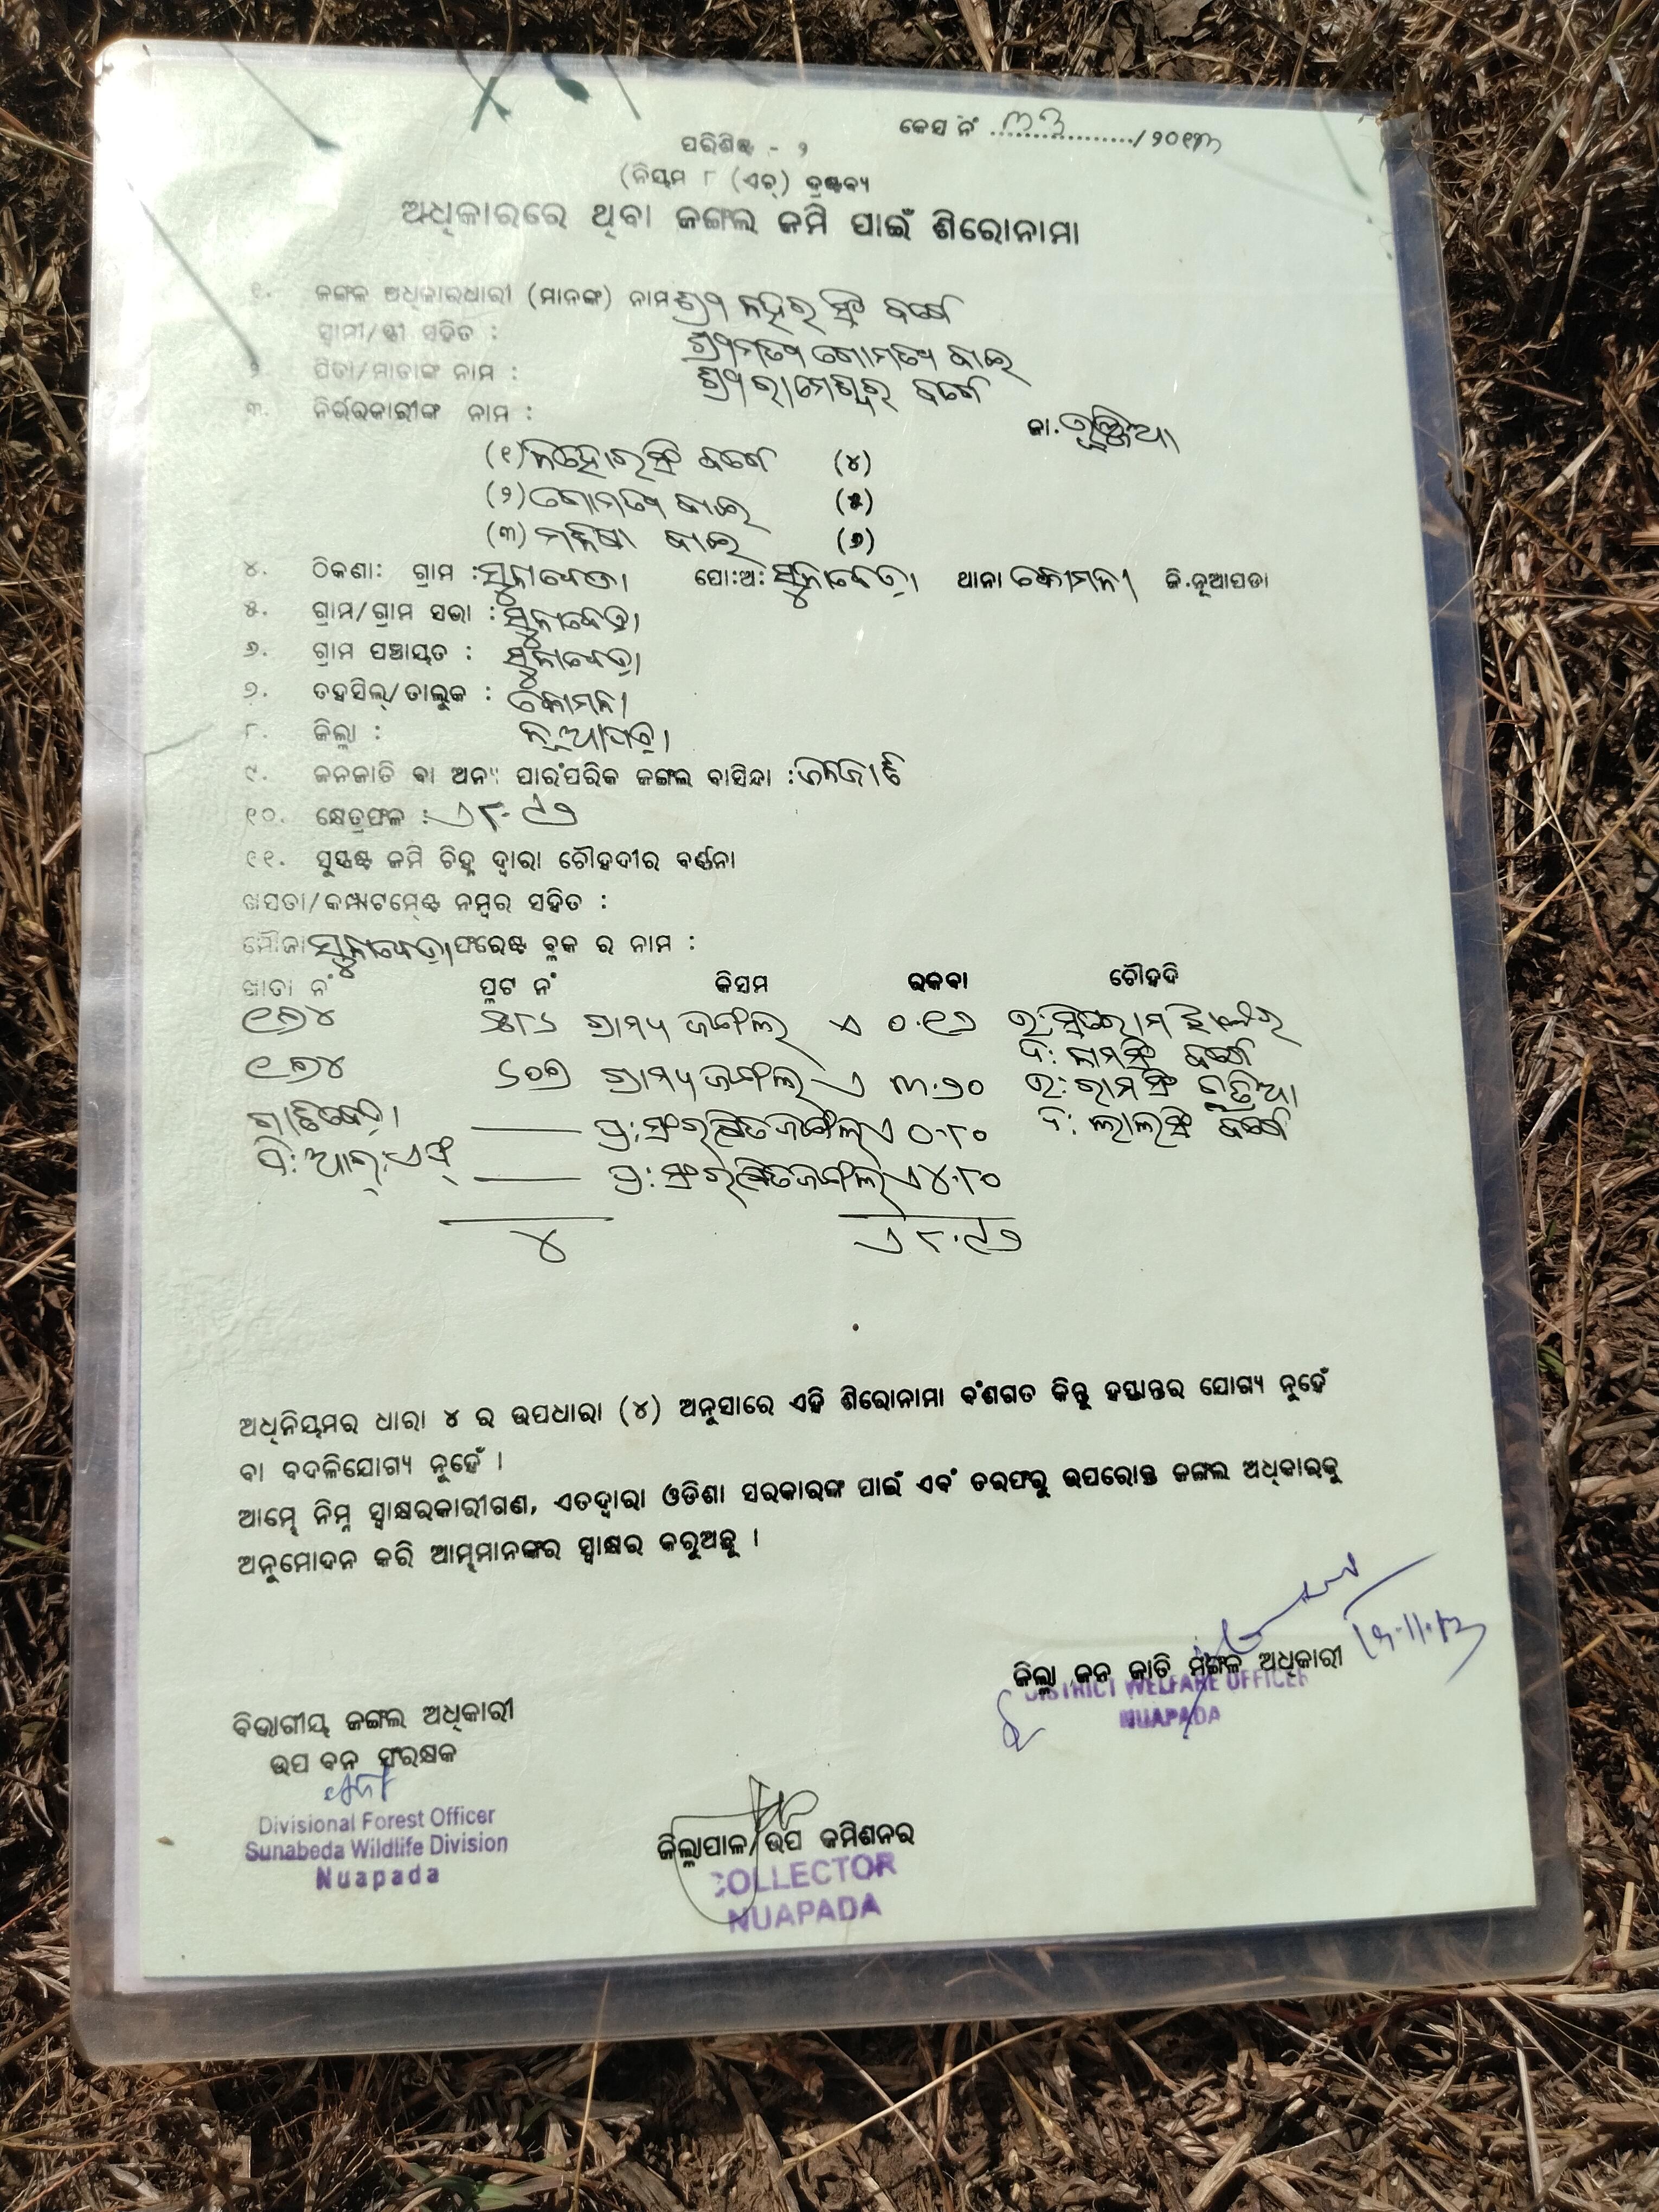 କେସ ନଂ ୩୩ /୨୦୧୩
ପରିଶିଷ୍ଟ - ୨
(ନିୟମ ୮ (ଏଚ୍) ଦ୍ରଷ୍ଟବ୍ୟ
ଅଧିକାରରେ ଥିବା ଜଙ୍ଗଲ ଜମି ପାଇଁ ଶିରୋନାମା
୧. ଜଙ୍ଗଲ ଅଧିକାରଧାରୀ (ମାନଙ୍କ) ନାମ ଶ୍ରୀ ଲହର ସିଂ ବର୍ଗେ
ସ୍ୱାମୀ/ସ୍ତ୍ରୀ ସହିତ : ଶ୍ରୀମତୀ ଗୋମତୀ ବାଇ
୨. ପିତା/ମାତାଙ୍କ ନାମ : ଶ୍ରୀ ରାମେଶ୍ୱର ବର୍ଗେ
୩. ନିର୍ଭରକାରୀଙ୍କ ନାମ : ଜା. ଭୁଞ୍ଜିଆ
(୧) ବର୍ଗେ (୪)
(୨) ଗୋମତୀ ବାଇ (୫)
(୩) ବାଇ (୬)
୪. ଠିକଣା: ଗ୍ରାମ : ସୁନାବେଡା ପୋ:ଅ: ସୁନାବେଡ଼ା ଥାନା କୋମନା ଜି.ନୂଆପଡା
୫. ଗ୍ରାମ/ଗ୍ରାମ ସଭା : ସୁନାବେଡ଼ା
୬. ଗ୍ରାମ ପଞ୍ଚାୟତ : ସୁନାବେଡ଼ା
୭. ତହସିଲ୍/ତାଲୁକ : କୋମନା
୮. ଜିଲ୍ଲା : ନୂଆପଡ଼ା
୯. ଜନଜାତି ବା ଅନ୍ୟ ପାରଂପରିକ ଜଙ୍ଗଲ ବାସିନ୍ଦା : ଜନଜାତି
୧୦. କ୍ଷେତ୍ରଫଳ : ଏ ୮.୯୭
୧୧. ସୁସ୍ପଷ୍ଟ ଜମି ଚିହ୍ନ ଦ୍ୱାରା ଚୌହଦୀର ବର୍ଣ୍ଣନା
ଖସଡା/କମ୍ପାଟମେଣ୍ଟ ନମ୍ବର ସହିତ :
ମୌଜା ସୁନାବେଡ଼ା ଫରେଷ୍ଟ ବ୍ଲକ ର ନାମ :
ଖାତା ନଂ ପ୍ଲଟ ନଂ କିସମ ରକବା ଚୌହଦି
୧୭୪ ଗ୍ରାମ୍ୟ ଜଙ୍ଗଲ ଏ ୦.୧୭
ବର୍ଗେ
୧୭୪ ୬୦୭ ଗ୍ରାମ୍ୟ ଜଙ୍ଗଲ ଏ ୩.୨୦ ଉ: ରାମସିଂ
ପ୍ର: ସଂରକ୍ଷିତ ଜଙ୍ଗଲ ଏ ୦.୮୦ ଦ: ଲାଲସିଂ ବର୍ଗେ
ପି: ଆର୍.ଏଫ୍ ପ୍ର: ସଂରକ୍ଷିତ ଜଙ୍ଗଲ ଏ ୪.୮୦
୪ ଏ ୮.୯୭
ଅଧିନିୟମର ଧାରା ୪ ର ଉପଧାରା (୪) ଅନୁସାରେ ଏହି ଶିରୋନାମା ବଂଶଗତ କିନ୍ତୁ ହସ୍ତାନ୍ତର ଯୋଗ୍ୟ ନୁହେଁ
ବା ବଦଳିଯୋଗ୍ୟ ନୁହେଁ ।
ଆମ୍ଭେ ନିମ୍ନ ସ୍ୱାକ୍ଷରକାରୀଗଣ, ଏତଦ୍ୱାରା ଓଡିଶା ସରକାରଙ୍କ ପାଇଁ ଏବଂ ତରଫରୁ ଉପରୋକ୍ତ ଜଙ୍ଗଲ ଅଧିକାରକୁ
ଅନୁମୋଦନ କରି ଆମ୍ଭମାନଙ୍କର ସ୍ୱାକ୍ଷର କରୁଅଛୁ ।
ଜିଲ୍ଲା ଜନ ଜାତି ମଙ୍ଗଳ ଅଧିକାରୀ
DISTRICT WELFARE OFFICER
NUAPADA
ବିଭାଗୀୟ ଜଙ୍ଗଲ ଅଧିକାରୀ
ଉପ ବନ ସଂରକ୍ଷକ
Divisional Forest Officer
Sunabeda Wildlife Division
Nuapada
ଜିଲ୍ଲାପାଳ/ଉପ କମିଶନର
COLLECTOR
NUAPADA